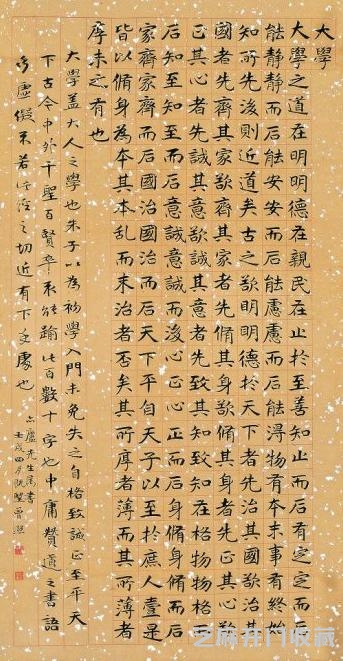 大學
大學之道在明明德在親民在止於至善知止而后有定定而后
能靜靜而后能安安而后能慮慮而后能得物有本末事有終始
知所先後則近道矣古之欲明明德於天下者先治其國欲治其
國者先齊其家欲齊其家者先脩其身欲脩其身者先正其心欲
正其心者先誠其意欲誠其意者先致其知致知在格物物格而
后知至知至而后意誠意誠而後心正心正而后身脩身脩而后
家齊家齊而后國治國治而后天下平自天子以至於庶人壹是
皆以脩身為本其本亂而末治者否矣其所厚者薄而其所薄者
厚未之有也
大學蓋大人之學也朱子以為初學入門未免失之自格致誠正至平天
下古今中外千聖百賢卒未能踰此百數十字也中庸贊道之書語
虛不若之切近有下手處也
先生屬書
壬戌四月既望曾熙
芝麻开门收藏